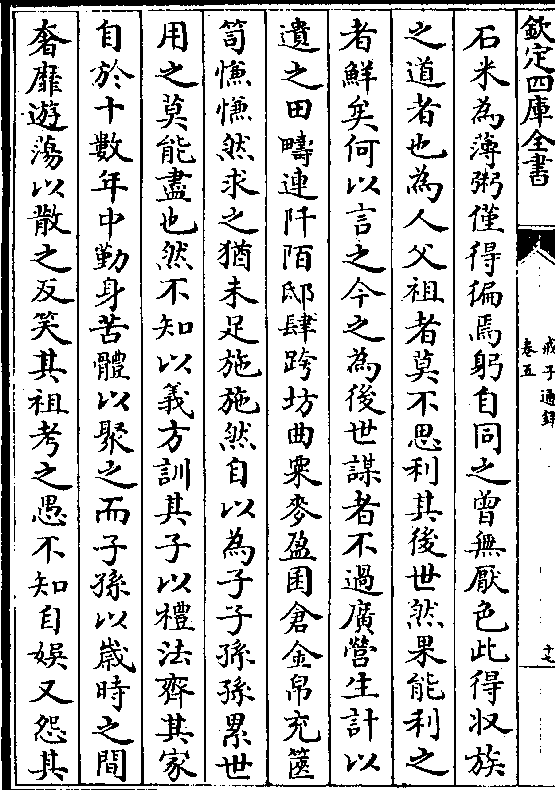 欽定四庫全書
戒子通録
卷五
十七
石米為薄粥僅得徧焉躬自同之曾無厭色此得收族
之道者也為人父祖者莫不思利其後世然果能利之
者鮮矣何以言之今之為後世謀者不過廣營生計以
遺之田疇連阡陌邸肆跨坊曲粟麥盈囷倉金帛充篋
笥慊慊然求之猶未足施施然自以為子子孫孫累世
用之莫能盡也然不知以義方訓其子以禮法齊其家
自於十數年中勤身苦體以聚之而子孫以歲時之間
奢靡遊蕩以散之反笑其祖考之愚不知自娛又怨其